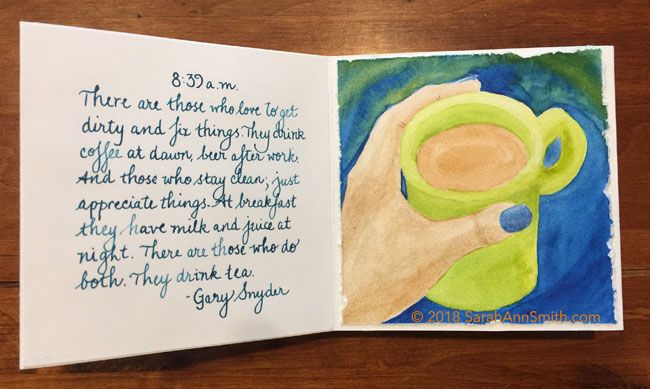 8:39 a.m.
There are those who love to get
dirty and fix things. They drink
coffee at dawn, beer after work.
And those who stay clean; just
appreciate things. At breakfast
they have milk and juice at
night. There are those who do
both. They drink tea.
-Gary Snyder
© 2018 SarahAnnSmith.com